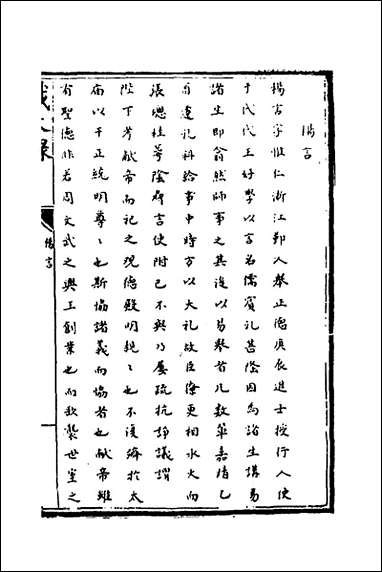 楊言
楊言字惟仁浙江鄞人舉正德庚辰進士授行人使
于代代王好學以言名儒賓礼甚隆因為諸生講易
諸生即翕然師事之其後以易舉者几數輩嘉靖乙
酉選礼科給事中時方以大礼故臣僚更相水火而
張璁桂萼陰尋言使附己不與乃屢疏抗諍議謂
陛下考献帝而祀之观德殿明親〻也不復躋於太
庙以干正統明尊〻也斯協諸義而協者也献帝雖
有聖德非若周文武之興王創業也而欲襲世室之
楊言